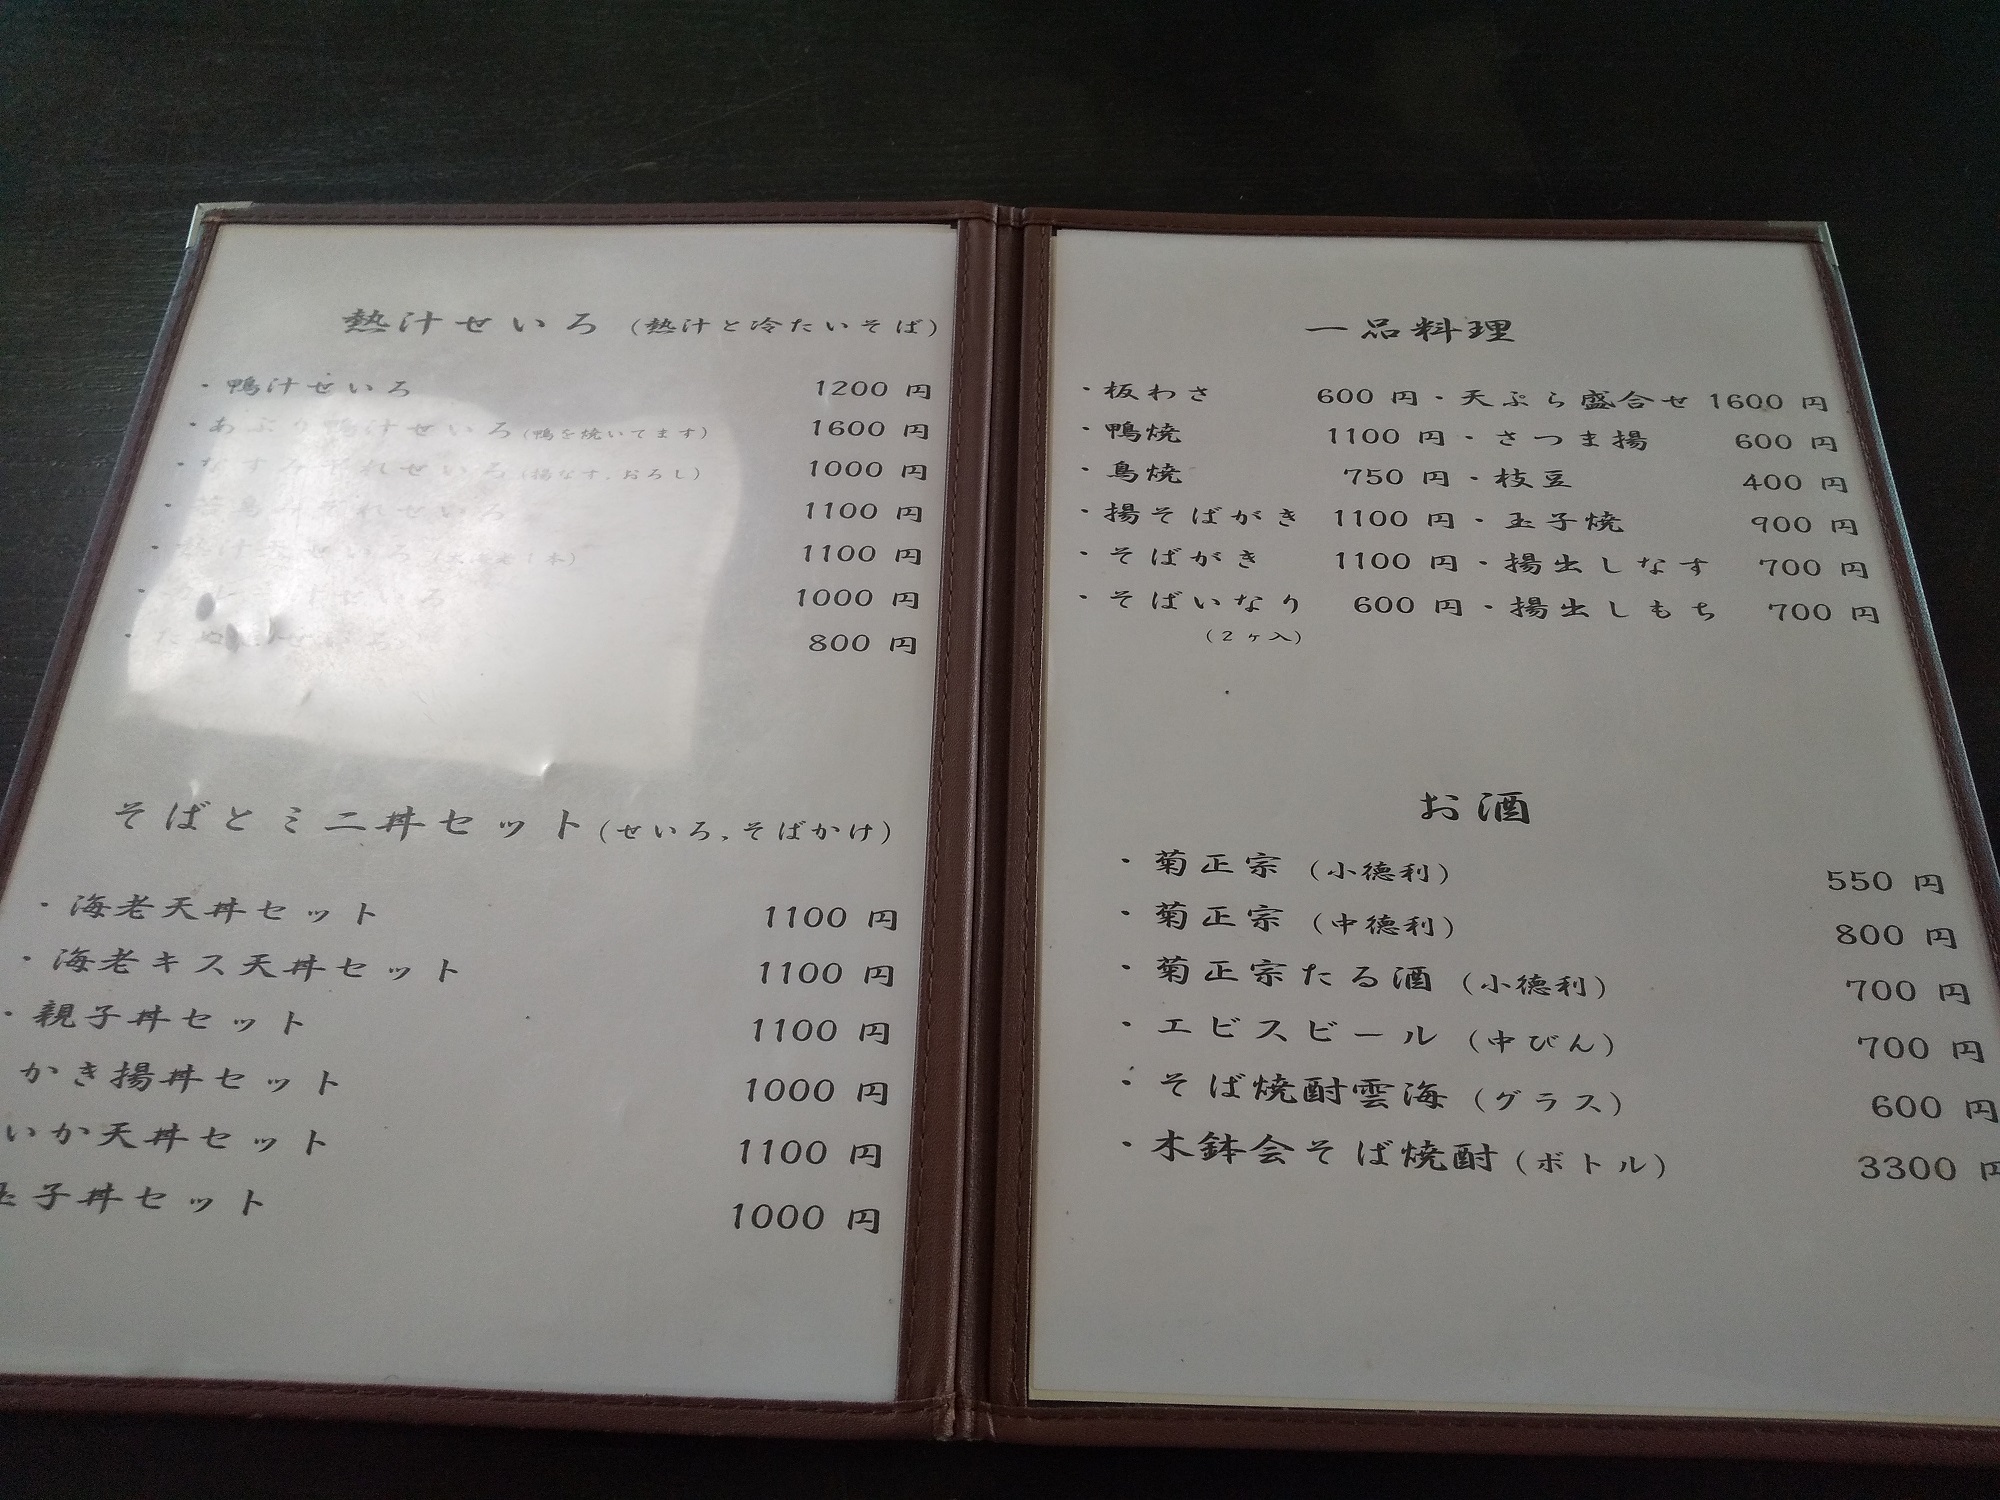 熱汁せいろ (熱汁と冷たいそば)
・鴨汁せいろ 1200 円
・あぶり鴨汁せいろ(鴨を焼いてます) 1600 円
・なすみぞれせいろ(揚なす,おろし) 1000 円
・若鳥みぞれせいろ 1100 円
・せいろ 1100 円
・せいろ 1000 円
・ 800 円
そばとミニ丼セット(せいろ,そばかけ)
・海老天丼セット 1100 円
・海老キス天丼セット 1100 円
・親子丼セット 1100 円
かき揚丼セット 1000 円
いか天丼セット 1100 円
玉子丼セット 1000 円
一品料理
・板わさ 600 円・天ぷら盛合せ 1600 円
・鴨焼 1100 円・さつま揚 600 円
・鳥焼 750 円・枝豆 400 円
・揚そばがき 1100 円・玉子焼 900 円
・そばがき 1100 円・揚出しなす 700 円
・そばいなり 600 円・揚出しもち 700 円
(2ヶ入)
お酒
・菊正宗 (小徳利) 550 円
・菊正宗 (中徳利) 800 円
・菊正宗たる酒 (小徳利) 700 円
・エビスビール (中びん) 700 円
・そば焼酎雲海 (グラス) 600 円
・木鉢会そば焼酎 (ボトル) 3300 円